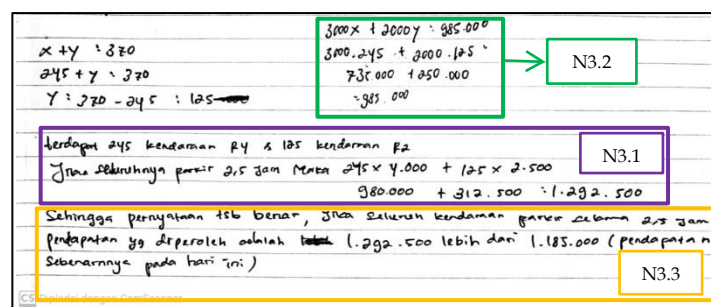 x + y : 370
245 + y : 370
y : 370 - 245 : 125
3000x + 2000y : 985.000
3000.245 + 2000.125 :
735.000 + 250.000
: 985.000
N3.2
terdapat 245 kendaraan R4 & 125 kendaraan R2
N3.1
Jika seluruhnya parkir 2,5 jam maka 245 x 4.000 + 125 x 2.500
980.000 + 312.500 : 1.292.500
Sehingga pernyataan tsb benar, jika seluruh kendaraan parkir selama 2,5 jam
pendapatan yg diperoleh adalah 1.292.500 lebih dari 1.185.000 (pendapatan
sebenarnya pada hari ini)
N3.3
CS Dipindai dengan CamScanner